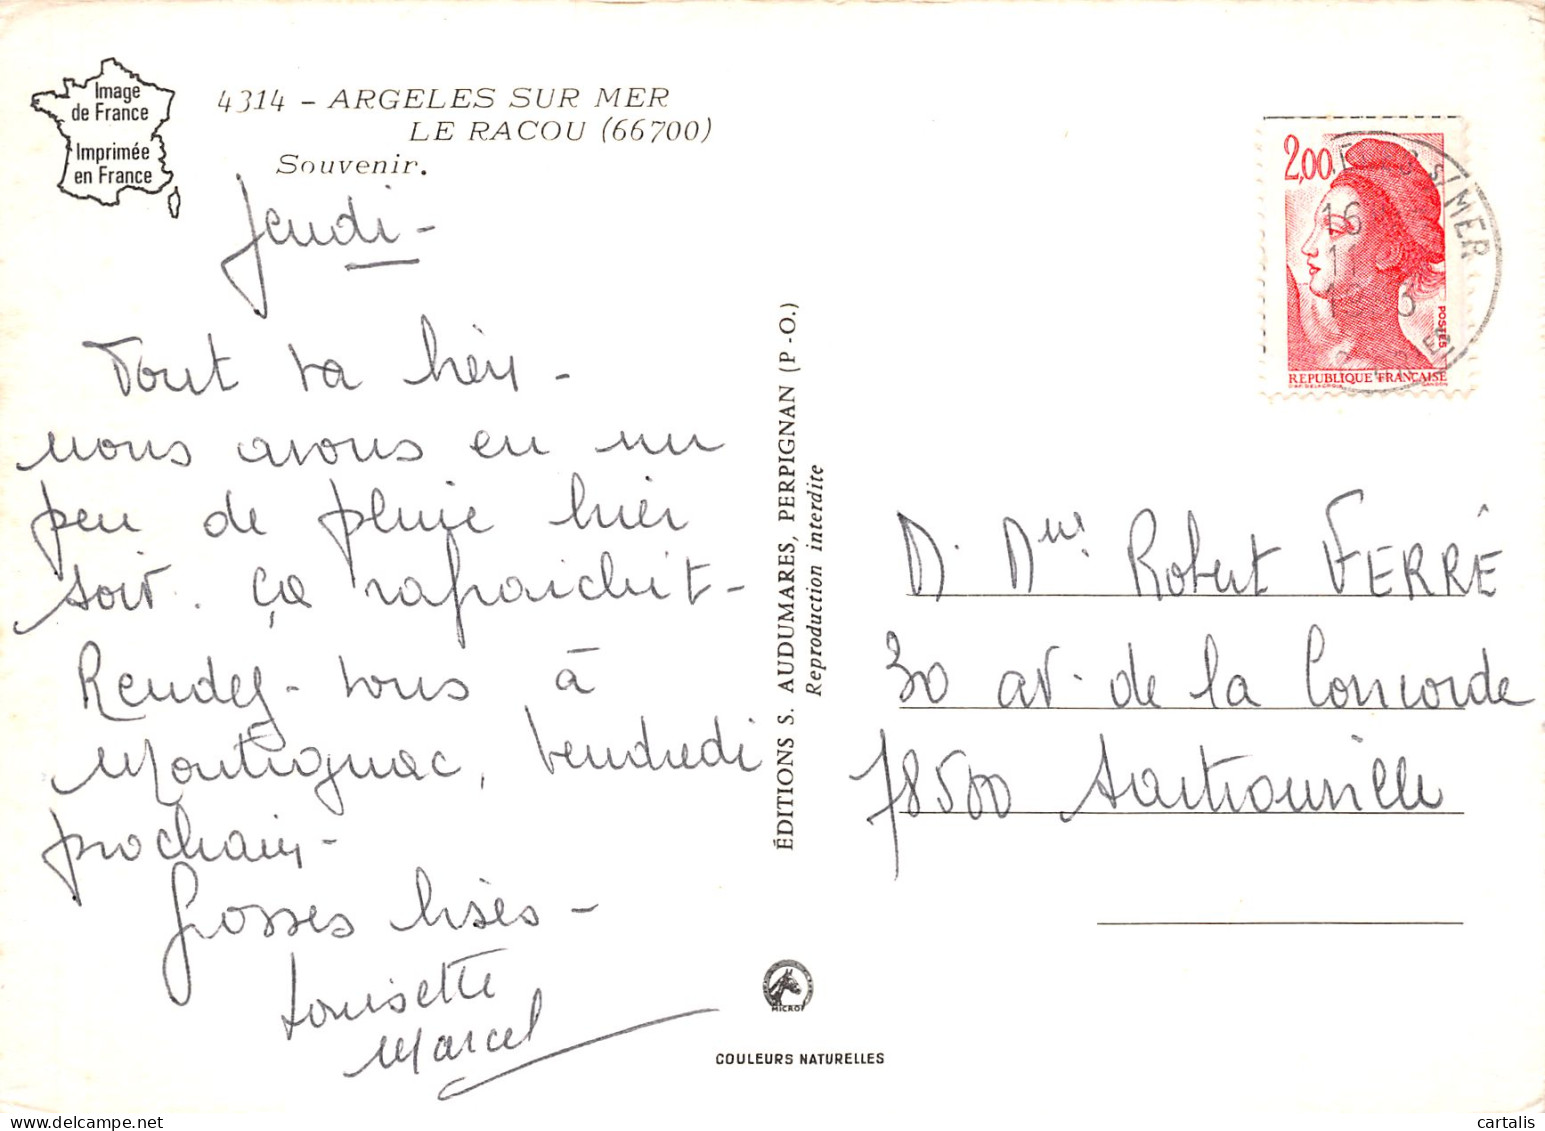 Image
de France
Imprimée
en France
4314 - ARGELES SUR MER
LE RACOU (66700)
Souvenir.
Jeudi -
Tout va bien -
nous avons eu un
peu de pluie hier
soir. ça rafraichit -
Rendez-vous à
Montignac, Vendredi
prochain -
Grosses bises -
Louisette
Marcel
ÉDITIONS S. AUDUMARES, PERPIGNAN (P.-O.)
Reproduction interdite
MICRO
COULEURS NATURELLES
2,00
POSTES
REPUBLIQUE FRANÇAISE
S/ MER
16
11
M. Mme Robert FERRÉ
30 av. de la Concorde
78500 Sartrouville
cartalis